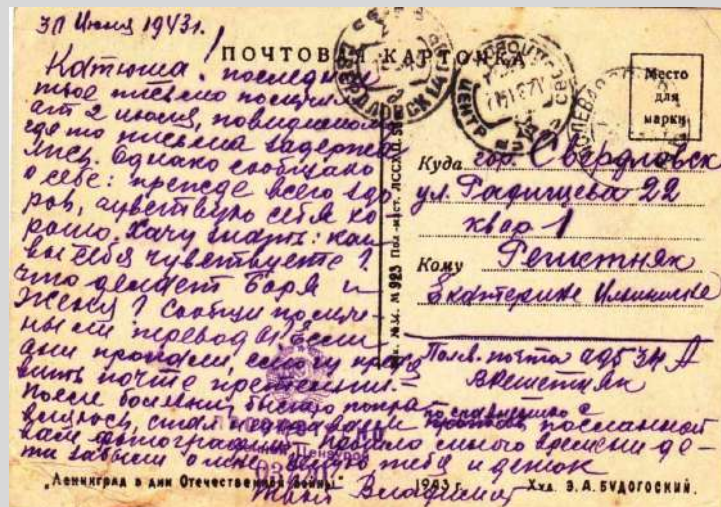 30 июня 1943 г.
ПОЧТОВАЯ КАРТОЧКА
Катюша! последнее
твое письмо получил
от 2 июня, повидимому
где то письма задержа
лись. Однако сообщаю
о себе: прежде всего здо
ров, чувствую себя хо
рошо. Хочу знать: как
вы себя чувствуете?
что делает Боря и
Женя? Сообщи получе-
ны ли перевод
почте претензии.
После болезни быстро попра
вился, стал по сравнению с посланной
вам фотографией. Прошло много времени де-
ти забыли о мне. Целую тебя и деток
Твой Владимир
Место
для
марки
Куда гор. Свердловск
ул. Радищева 22
квар 1
Кому Решетняк
Екатерине Ильиничне
Полев. почта 29534 А
В Решетняк
„Ленинград в дни Отечественной войны" 1943 г. Худ. Э. А. БУДОГОСКИЙ.